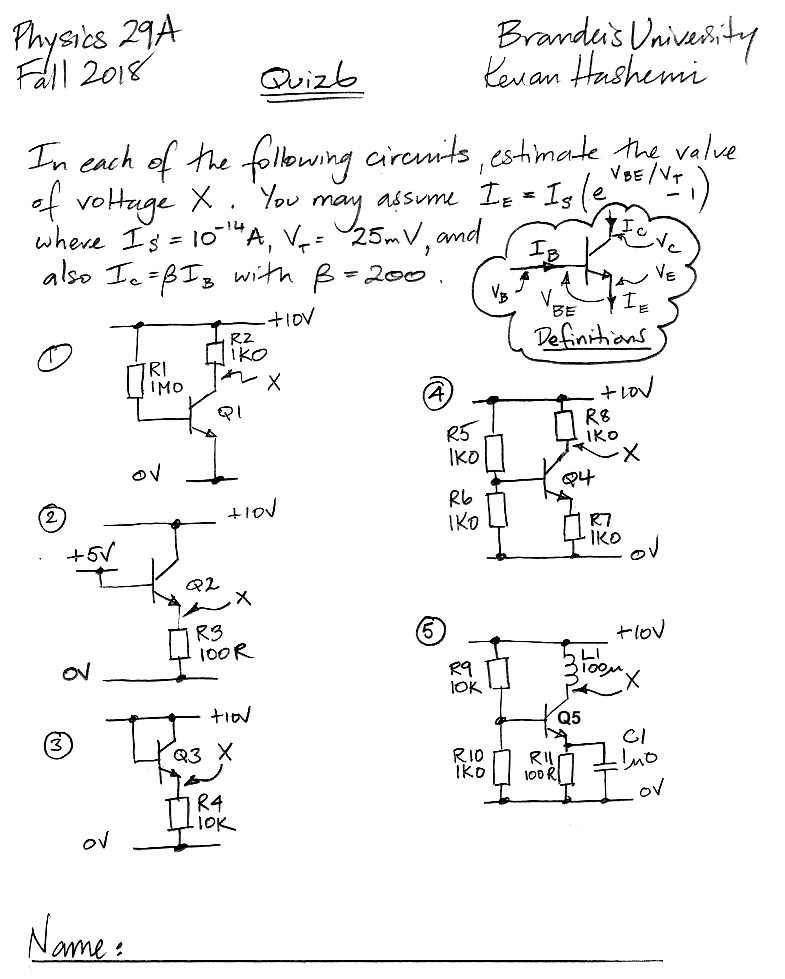 Physics 29A
Fall 2018
Quiz 6
Brandeis University
Kevan Hashemi
In each of the following circuits, estimate the value
of voltage X. You may assume I_E = I_S (e^{V_BE/V_T} - 1)
where I_S = 10^-14 A, V_T = 25mV, and
also I_C = βI_B with β = 200.
I_C
V_C
I_B
V_E
V_B
V_BE
I_E
Definitions
①
+10V
R2
1K0
R1
1M0
X
Q1
0V
②
+10V
+5V
Q2
X
R3
100R
0V
③
+10V
Q3
X
R4
10K
0V
④
+10V
R8
1K0
R5
1K0
X
Q4
R6
1K0
R7
1K0
0V
⑤
+10V
L1
100μ
R9
10K
X
Q5
C1
1μ0
R10
1K0
R11
100R
0V
Name: